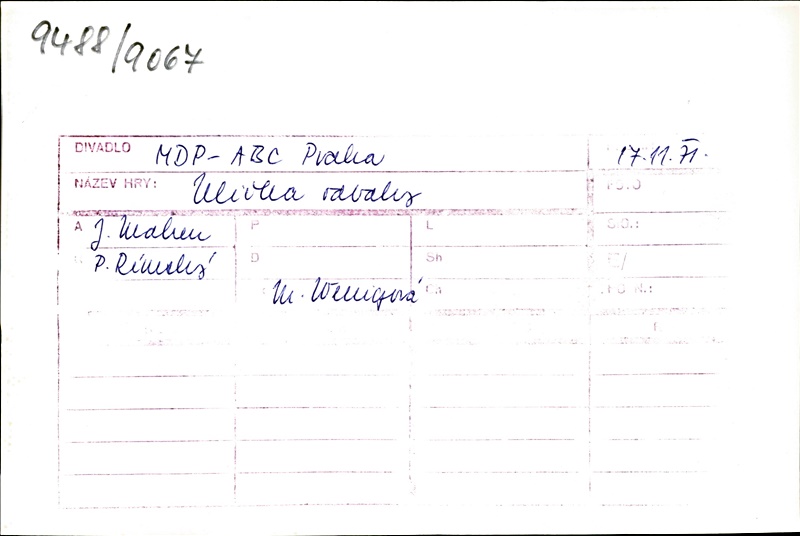 9488/9067
DIVADLO MDP-ABC Praha 17.11.71.
NÁZEV HRY: Ulička odvahy
A J. Mahen P L G.O.:
P. Rímský D Sh
M. Wenigová